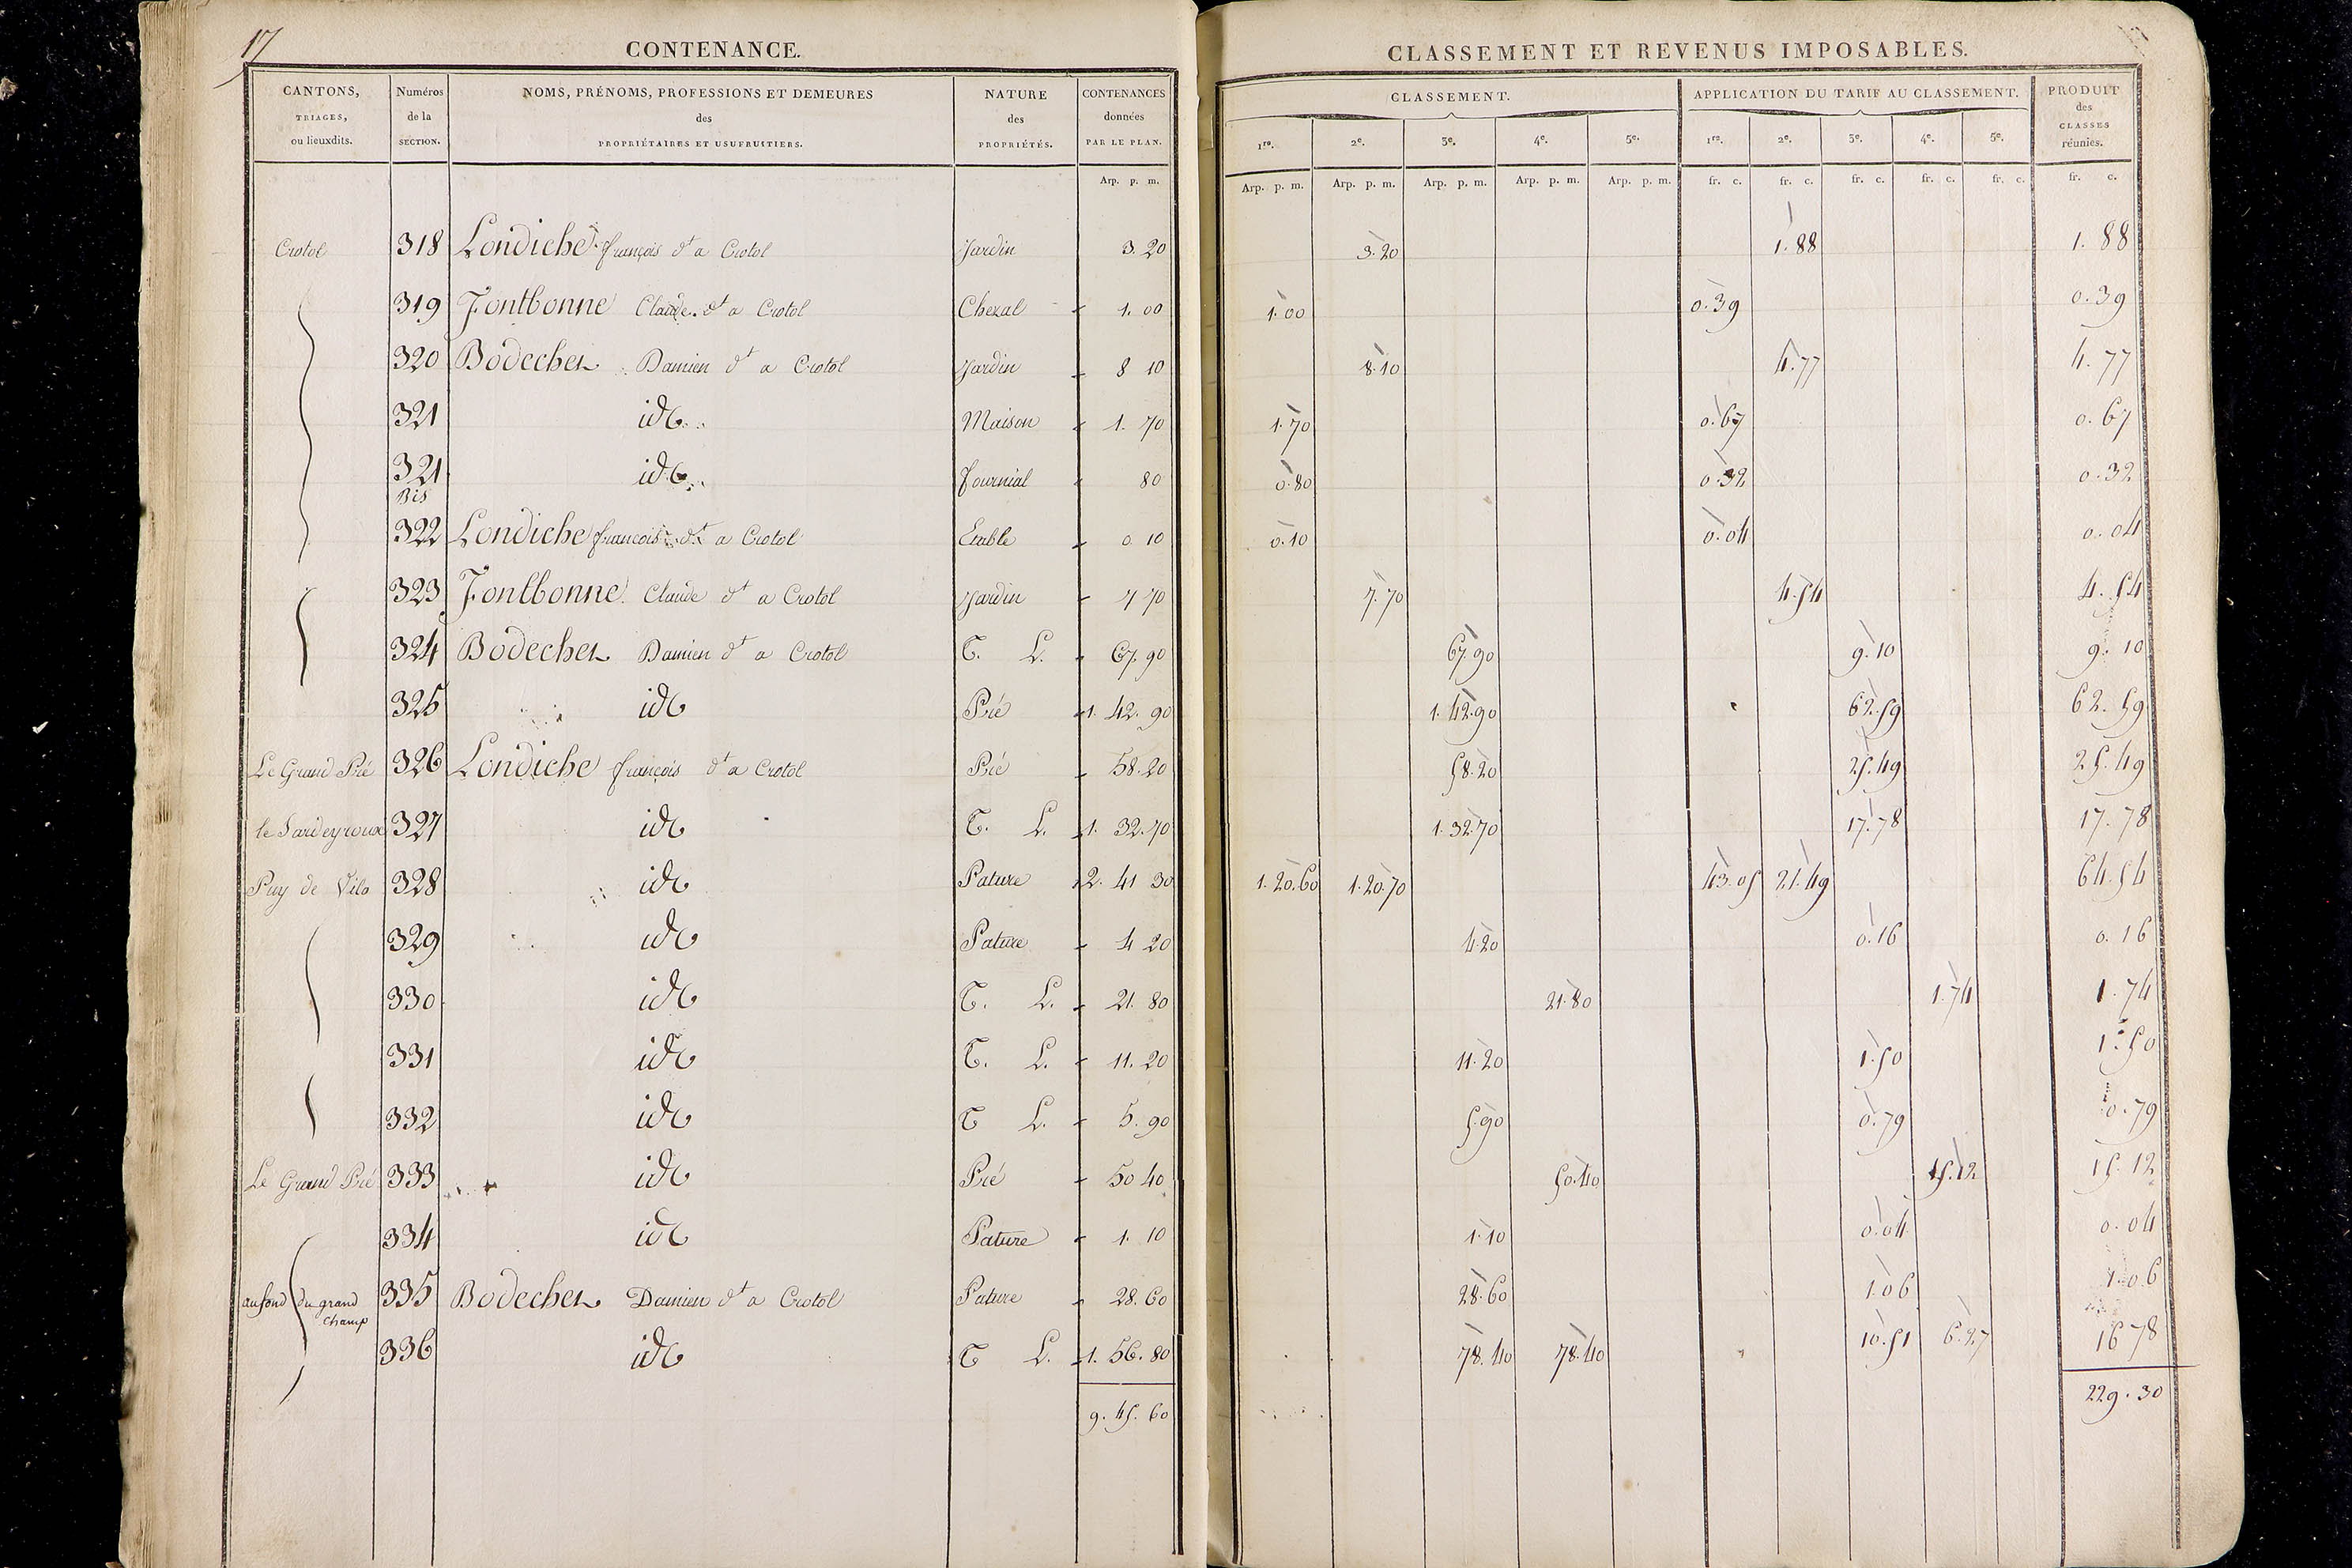 17
CONTENANCE.
CANTONS, TRIAGES, ou lieuxdits. | Numéros de la SECTION. | NOMS, PRÉNOMS, PROFESSIONS ET DEMEURES des PROPRIÉTAIRES ET USUFRUITIERS. | NATURE des PROPRIÉTÉS. | CONTENANCES données PAR LE PLAN.
Arp. p. m.
Crotol 318 Londiche françois dt a Crotol Jardin 3. 20
319 Fontbonne Claude. dt a Crotol Chezal - 1. 00
320 Bodecher Damien dt a Crotol Jardin - 8 10
321 id Maison - 1. 70
321 Bis id fournial - 80
322 Londiche francois dt a Crotol Etable - 0 10
323 Fontbonne Claude dt a Crotol Jardin - 7 70
324 Bodecher Damien dt a Crotol T. L. - 67. 90
325 id Pré - 1. 42. 90
Le Grand Pré 326 Londiche françois dt a Crotol Pré - 58. 20
le Sardeyroux 327 id T. L. - 1. 32. 70
Puy de Vilo 328 id Pature - 2. 41 30
329 id Pature - 4 20
330 id T. L. - 21. 80
331 id T. L. - 11. 20
332 id T L. - 5. 90
Le Grand Pré 333 id Pré - 50 40
334 id Pature - 1. 10
au fond du grand champ 335 Bodecher Damien dt a Crotol Pature - 28. 60
336 id T L. - 1. 56. 80
9. 45. 60
CLASSEMENT ET REVENUS IMPOSABLES.
CLASSEMENT. | APPLICATION DU TARIF AU CLASSEMENT. | PRODUIT des CLASSES réunies.
1re. 2e. 3e. 4e. 5e. 1re. 2e. 3e. 4e. 5e.
Arp. p. m. Arp. p. m. Arp. p. m. Arp. p. m. Arp. p. m. fr. c. fr. c. fr. c. fr. c. fr. c. fr. c.
3. 20 1. 88 1. 88
1. 00 0. 39 0. 39
8. 10 4. 77 4. 77
1. 70 0. 67 0. 67
0. 80 0. 32 0. 32
0. 10 0. 04 0. 04
7. 70 4. 54 4. 54
67. 90 9. 10 9. 10
1. 42. 90 62. 59 62. 59
58. 20 25. 49 25. 49
1. 32. 70 17. 78 17. 78
1. 20. 60 1. 20. 70 43. 05 21. 49 64. 54
4. 20 0. 16 0. 16
21. 80 1. 74 1. 74
11. 20 1. 50 1. 50
5. 90 0. 79 0. 79
50. 40 15. 12 15. 12
1. 10 0. 04 0. 04
28. 60 1. 06 1. 06
78. 40 78. 40 10. 51 6. 27 16 78
229. 30